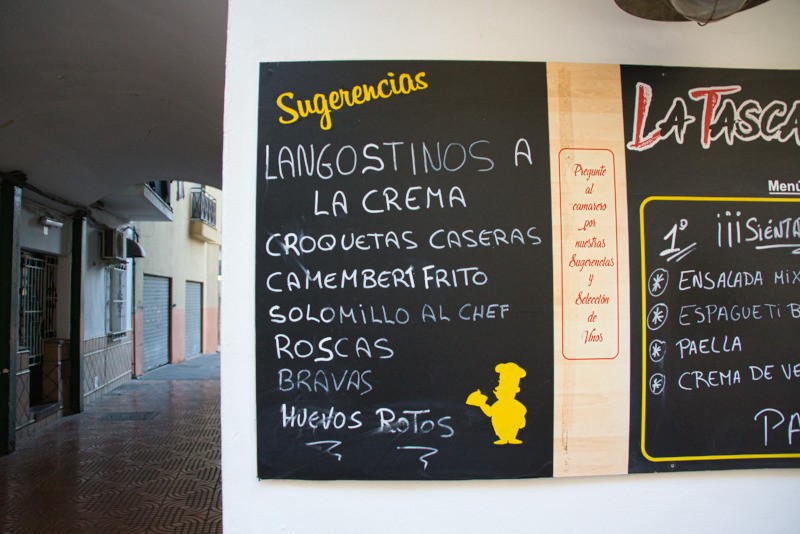 Sugerencias
LANGOSTINOS A
LA CREMA
CROQUETAS CASERAS
CAMEMBERT FRITO
SOLOMILLO AL CHEF
ROSCAS
BRAVAS
HUEVOS ROTOS
Pregunte
al
camarero
por
nuestras
Sugerencias
y
Selección
de
Vinos
LA TASCA
Menú
1º ¡¡¡SIÉNTA
ENSALADA MIX
ESPAGUETI B
PAELLA
CREMA DE VE
PA